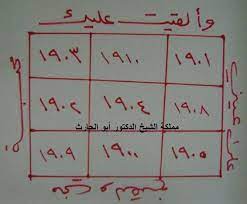 وألقيت عليك
١٩٠١ ١٩١٠ ١٩٠٣
١٩٠٨ ١٩٠٤ ١٩٠٢
مملكة الشيخ الدكتور أبو الحارث
١٩٠٥ ١٩٠٠ ١٩٠٩
على عيني